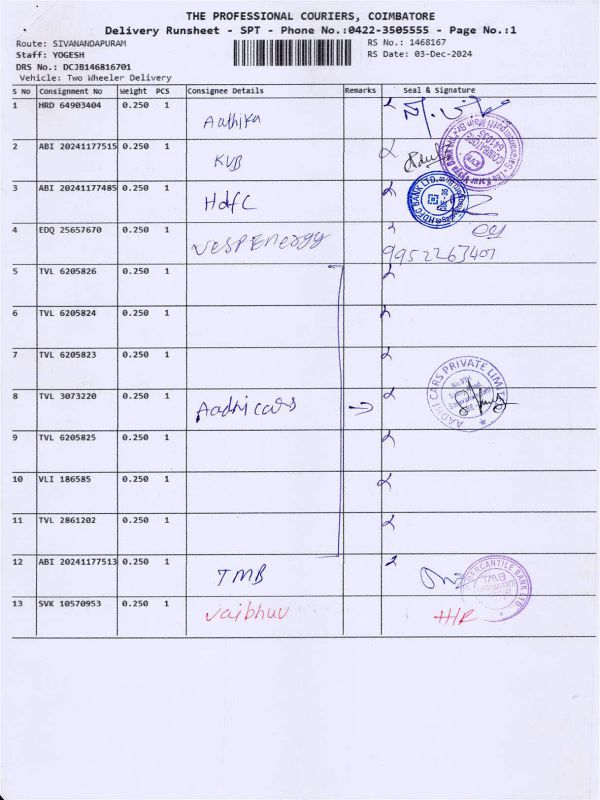 THE PROFESSIONAL COURIERS, COIMBATORE
Delivery Runsheet - SPT - Phone No.:0422-3505555 - Page No.:1
Route: SIVANANDAPURAM
Staff: YOGESH
DRS No.: DCJB146816701
Vehicle: Two Wheeler Delivery
RS No.: 1468167
RS Date: 03-Dec-2024
S No Consignment No Weight PCS Consignee Details Remarks Seal & Signature
1 HRD 64903404 0.250 1 Aathika
2 ABI 20241177515 0.250 1 KVB
3 ABI 20241177485 0.250 1 HdfC
HDFC BANK LTD.
4 EDQ 25657670 0.250 1 VESPEnergy
9952263401
5 TVL 6205826 0.250 1
6 TVL 6205824 0.250 1
7 TVL 6205823 0.250 1
8 TVL 3073220 0.250 1 Aadhi cars
AADHI CARS PRIVATE LIMITED
9 TVL 6205825 0.250 1
10 VLI 186585 0.250 1
11 TVL 2861202 0.250 1
12 ABI 20241177513 0.250 1 TMB
MERCANTILE BANK LTD
TMB
13 SVK 10570953 0.250 1 Vaibhuv H/R